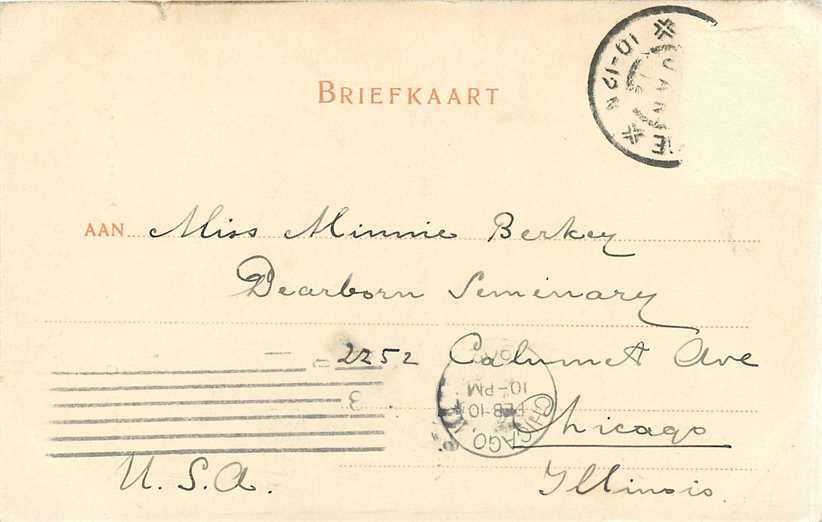 BRIEFKAART
10-12 N
JAN
AAN Miss Minnie Berkey
Dearborn Seminary
2252 Calumet Ave
Chicago
Illinois.
U.S.A.
CHICAGO, ILL.
FEB-10
10-PM
3